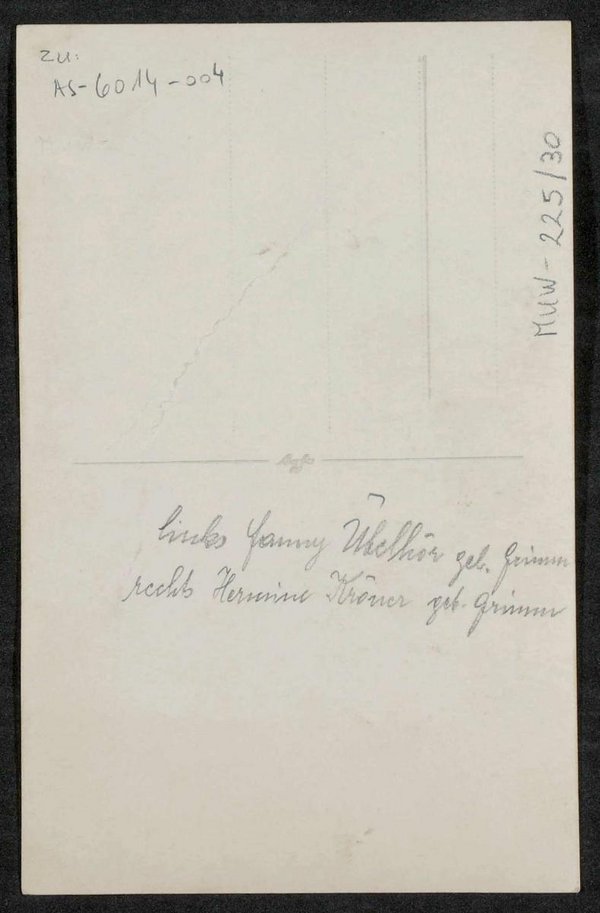 zu:
AS-6014-004
MUW-225/30
links Fanny Übelhör geb. Grimm
rechts Hermine Kröner geb. Grimm